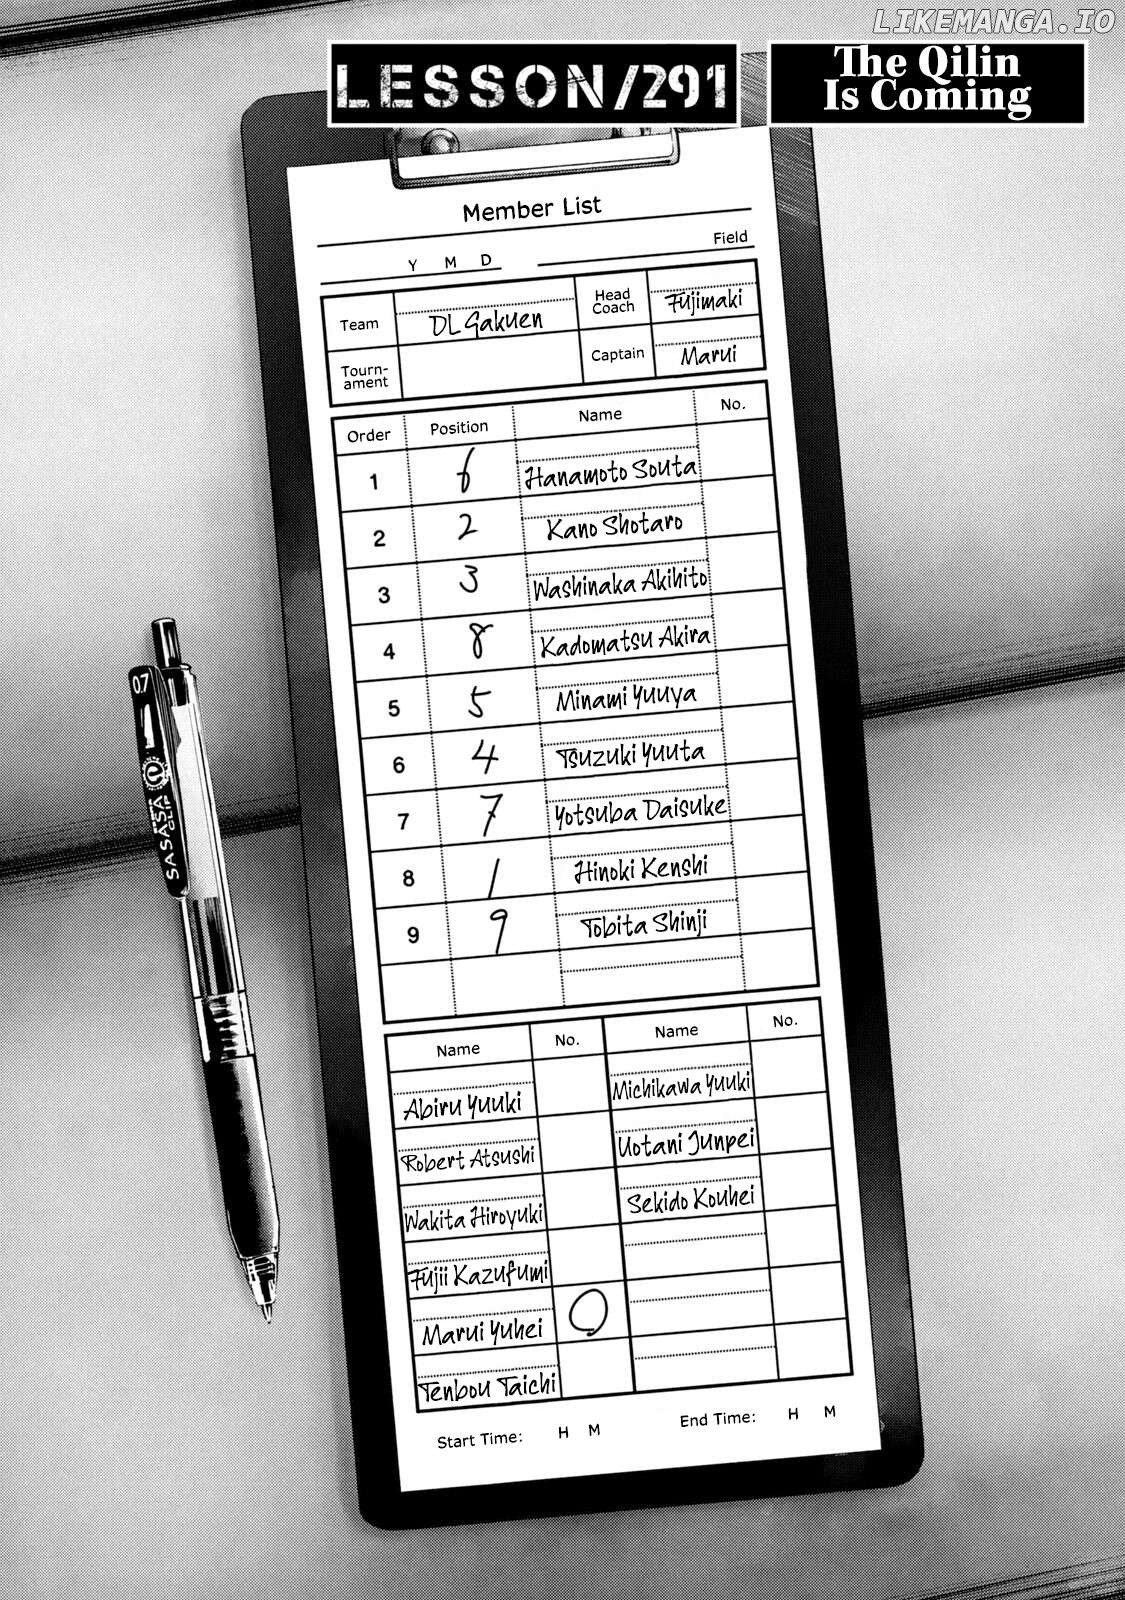 LIKEMANGA.IO
LESSON/291
The Qilin
Is Coming
Member List
Y M D
Field
Team
DL Gakuen
Head
Coach
Fujimaki
Tourn-
ament
Captain
Marui
Order Position Name No.
1 6 Hanamoto Souta
2 2 Kano Shotaro
3 3 Washinaka Akihito
4 8 Kadomatsu Akira
5 5 Minami Yuuya
6 4 Tsuzuki Yuuta
7 7 Yotsuba Daisuke
8 1 Hinoki Kenshi
9 9 Tobita Shinji
Name No. Name No.
Abiru Yuuki Michikawa Yuuki
Robert Atsushi Uotani Junpei
Wakita Hiroyuki Sekido Kouhei
Fujii Kazufumi
Marui Yuhei O
Tenbou Taichi
Start Time: H M End Time: H M
0.7
SASASA
CLIP